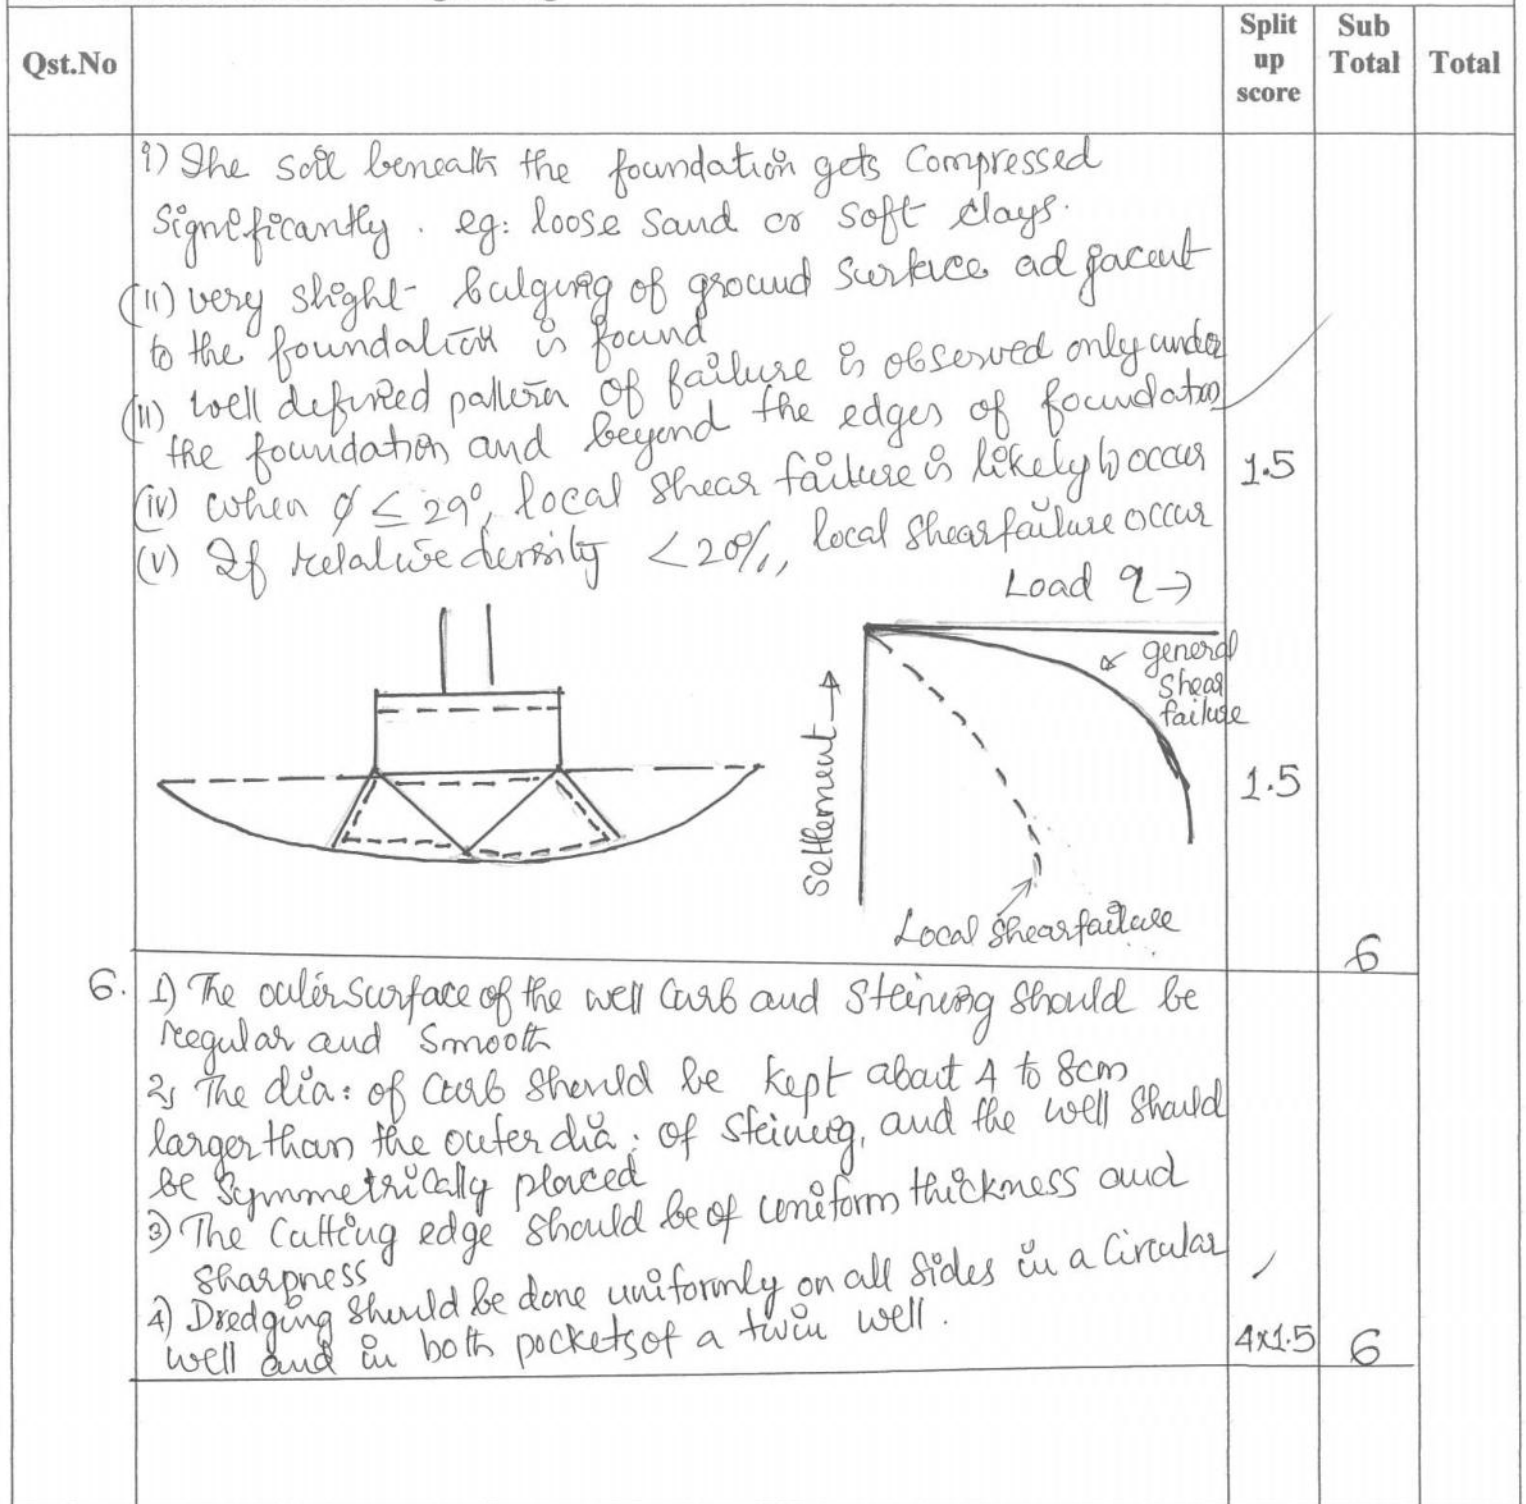 Qst.No
Split up score
Sub Total
Total
i) The soil beneath the foundation gets compressed
significantly. eg: loose sand or soft clays.
(ii) very slight bulging of ground surface adjacent
to the foundation is found
(iii) well defined pattern of failure is observed only under
the foundation and beyond the edges of foundation
(iv) when φ ≤ 29°, local shear failure is likely to occur
1.5
(v) If relative density <20%, local shear failure occur
Load q →
general
shear
failure
Settlement →
1.5
Local shear failure
6
6. 1) The outer surface of the well curb and steining should be
regular and smooth
2) The dia: of curb should be kept about 4 to 8cm
larger than the outer dia: of steining, and the well should
be symmetrically placed
3) The cutting edge should be of uniform thickness and
sharpness
4) Dredging should be done uniformly on all sides in a circular
well and in both pockets of a twin well.
4x1.5
6